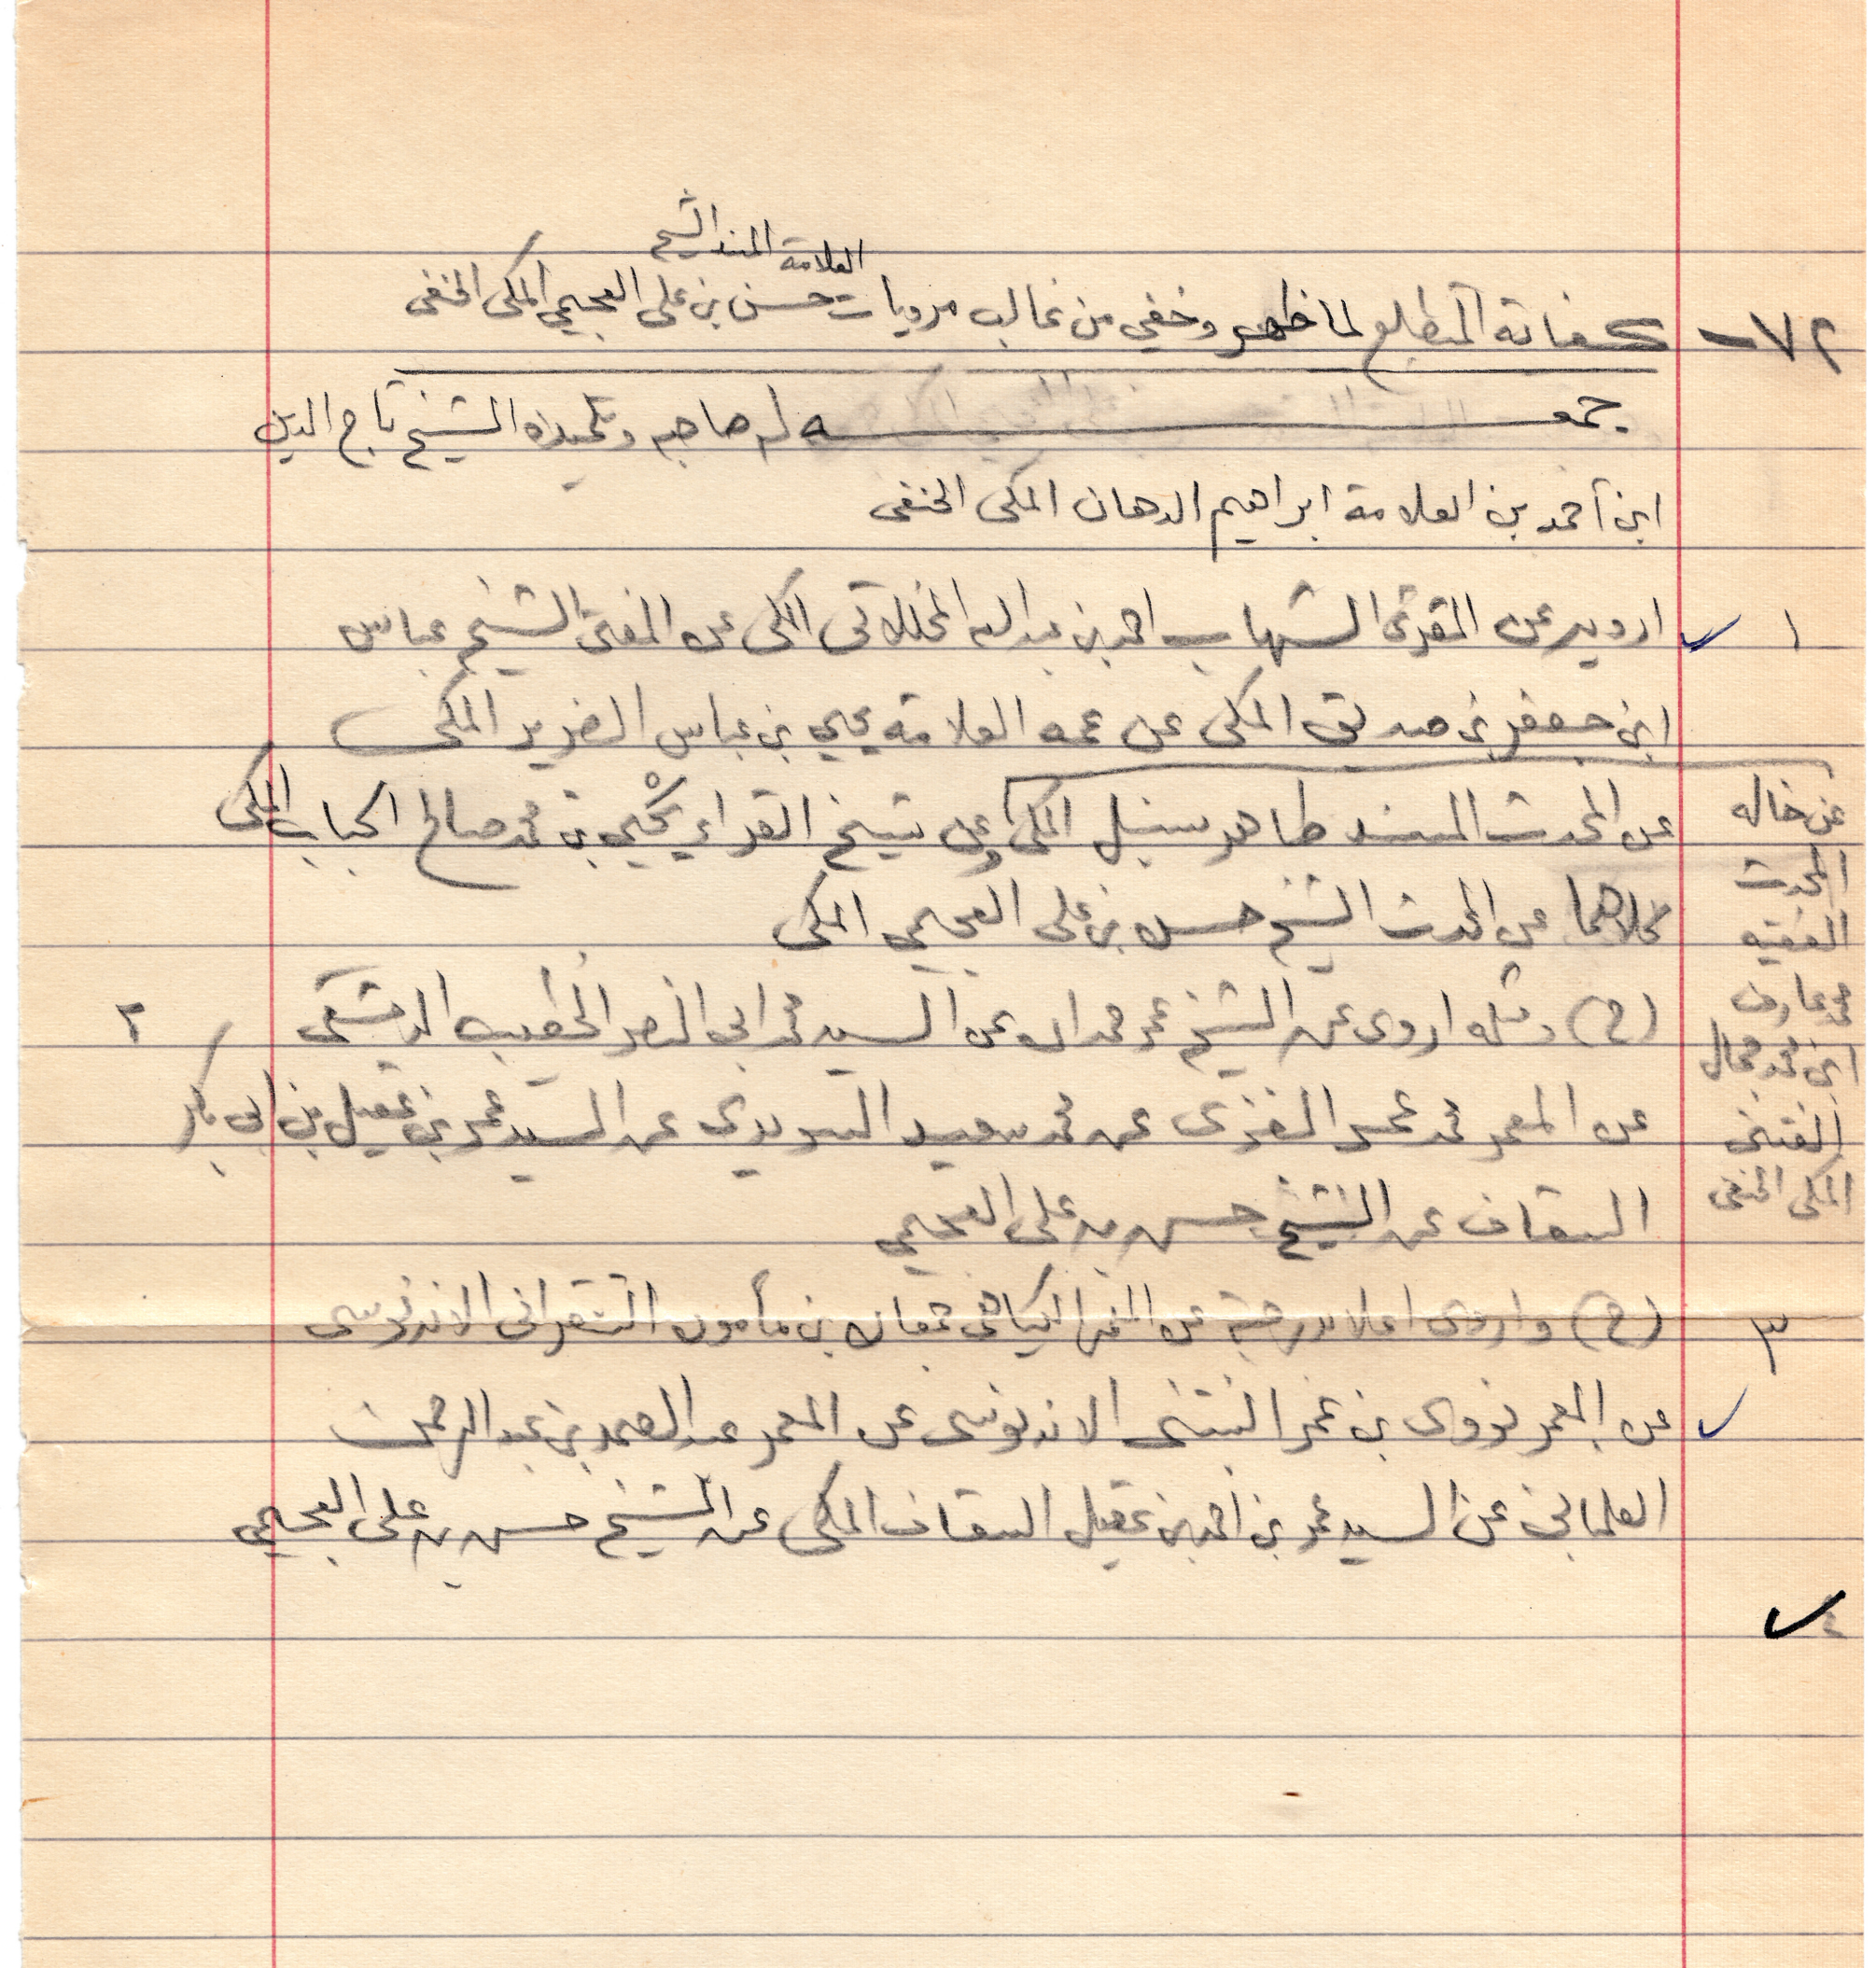 العلامة المسند الشيخ
٧٢ - كفاية المتطلع لما ظهر وخفي من غالب مرويات حسن بن علي العجيمي المكي الحنفي
جمعـــه له صاحبه وتلميذه الشيخ تاج الدين
ابن أحمد بن العلامة ابراهيم الدهان المكي الحنفي
١ ارويه عن المقرئ الشهاب احمد بن عبد الله المخللاتي المكي عن المفتي الشيخ عباس
ابن جعفر بن صديق المكي عن عمه العلامة يحيي بن عباس الضرير المكي
عن المحدث المسند طاهر سنبل المكي وعن شيخ القراء يحيي بن محمد صالح الحباب المكي
كلاهما عن المحدث الشيخ حسن بن علي العجيمي المكي
عن خاله
المحدث
الفقيه
محمد عارف
ابن محمد جمال
الفتني
المكي الحنفي
(ح) ومثله اروي عن الشيخ عمر حمدان عن السيد محمد ابي النصر الخطيب الدمشقي ٢
عن المعمر محمد عمر الغزي عن محمد سعيد السويدي عن السيد عمر بن عقيل بن ابي بكر
السقاف عن الشيخ حسن بن علي العجيمي
٣ (ح) واروي اعلا بدرجة عن المعمر الكياهي جمعان بن مأمون التنقراني الاندنوسي
عن المعمر نووي بن عمر البنتني الاندنوسي عن المعمر عبد الصمد بن عبد الرحمن
الفلمباني عن السيد عمر بن احمد بن عقيل السقاف المكي عن الشيخ حسن بن علي العجيمي
٤